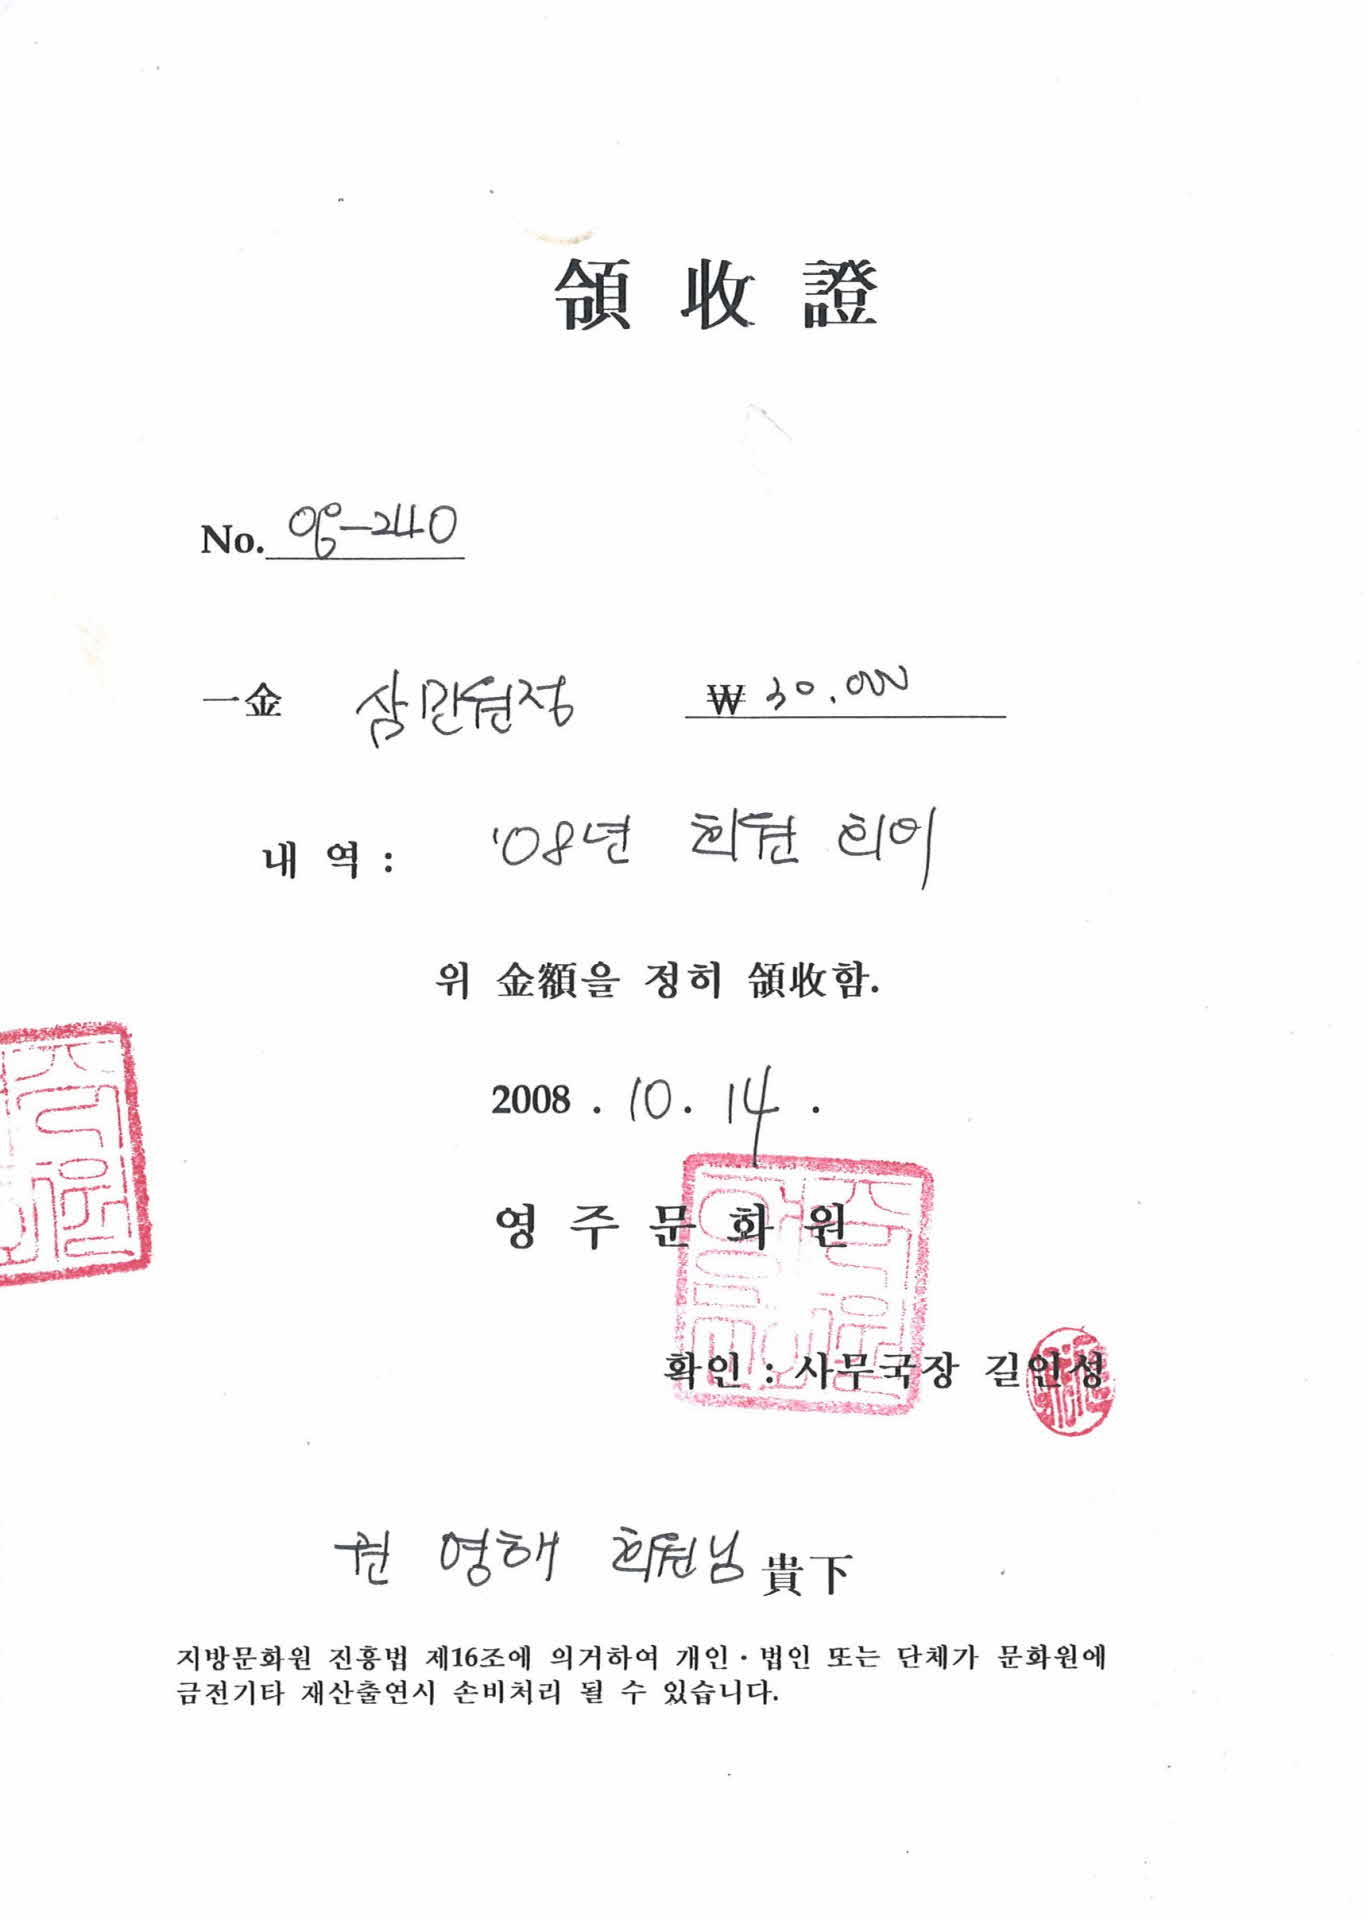 領收證
No. 08-240
一金 삼만원정 ₩ 30,000
내 역 : '08년 회원 회비
위 金額을 정히 領收함.
2008 . 10 . 14 .
영 주 문 화 원
확인 : 사무국장 길인성
권 영해 회원님 貴下
지방문화원 진흥법 제16조에 의거하여 개인·법인 또는 단체가 문화원에
금전기타 재산출연시 손비처리 될 수 있습니다.